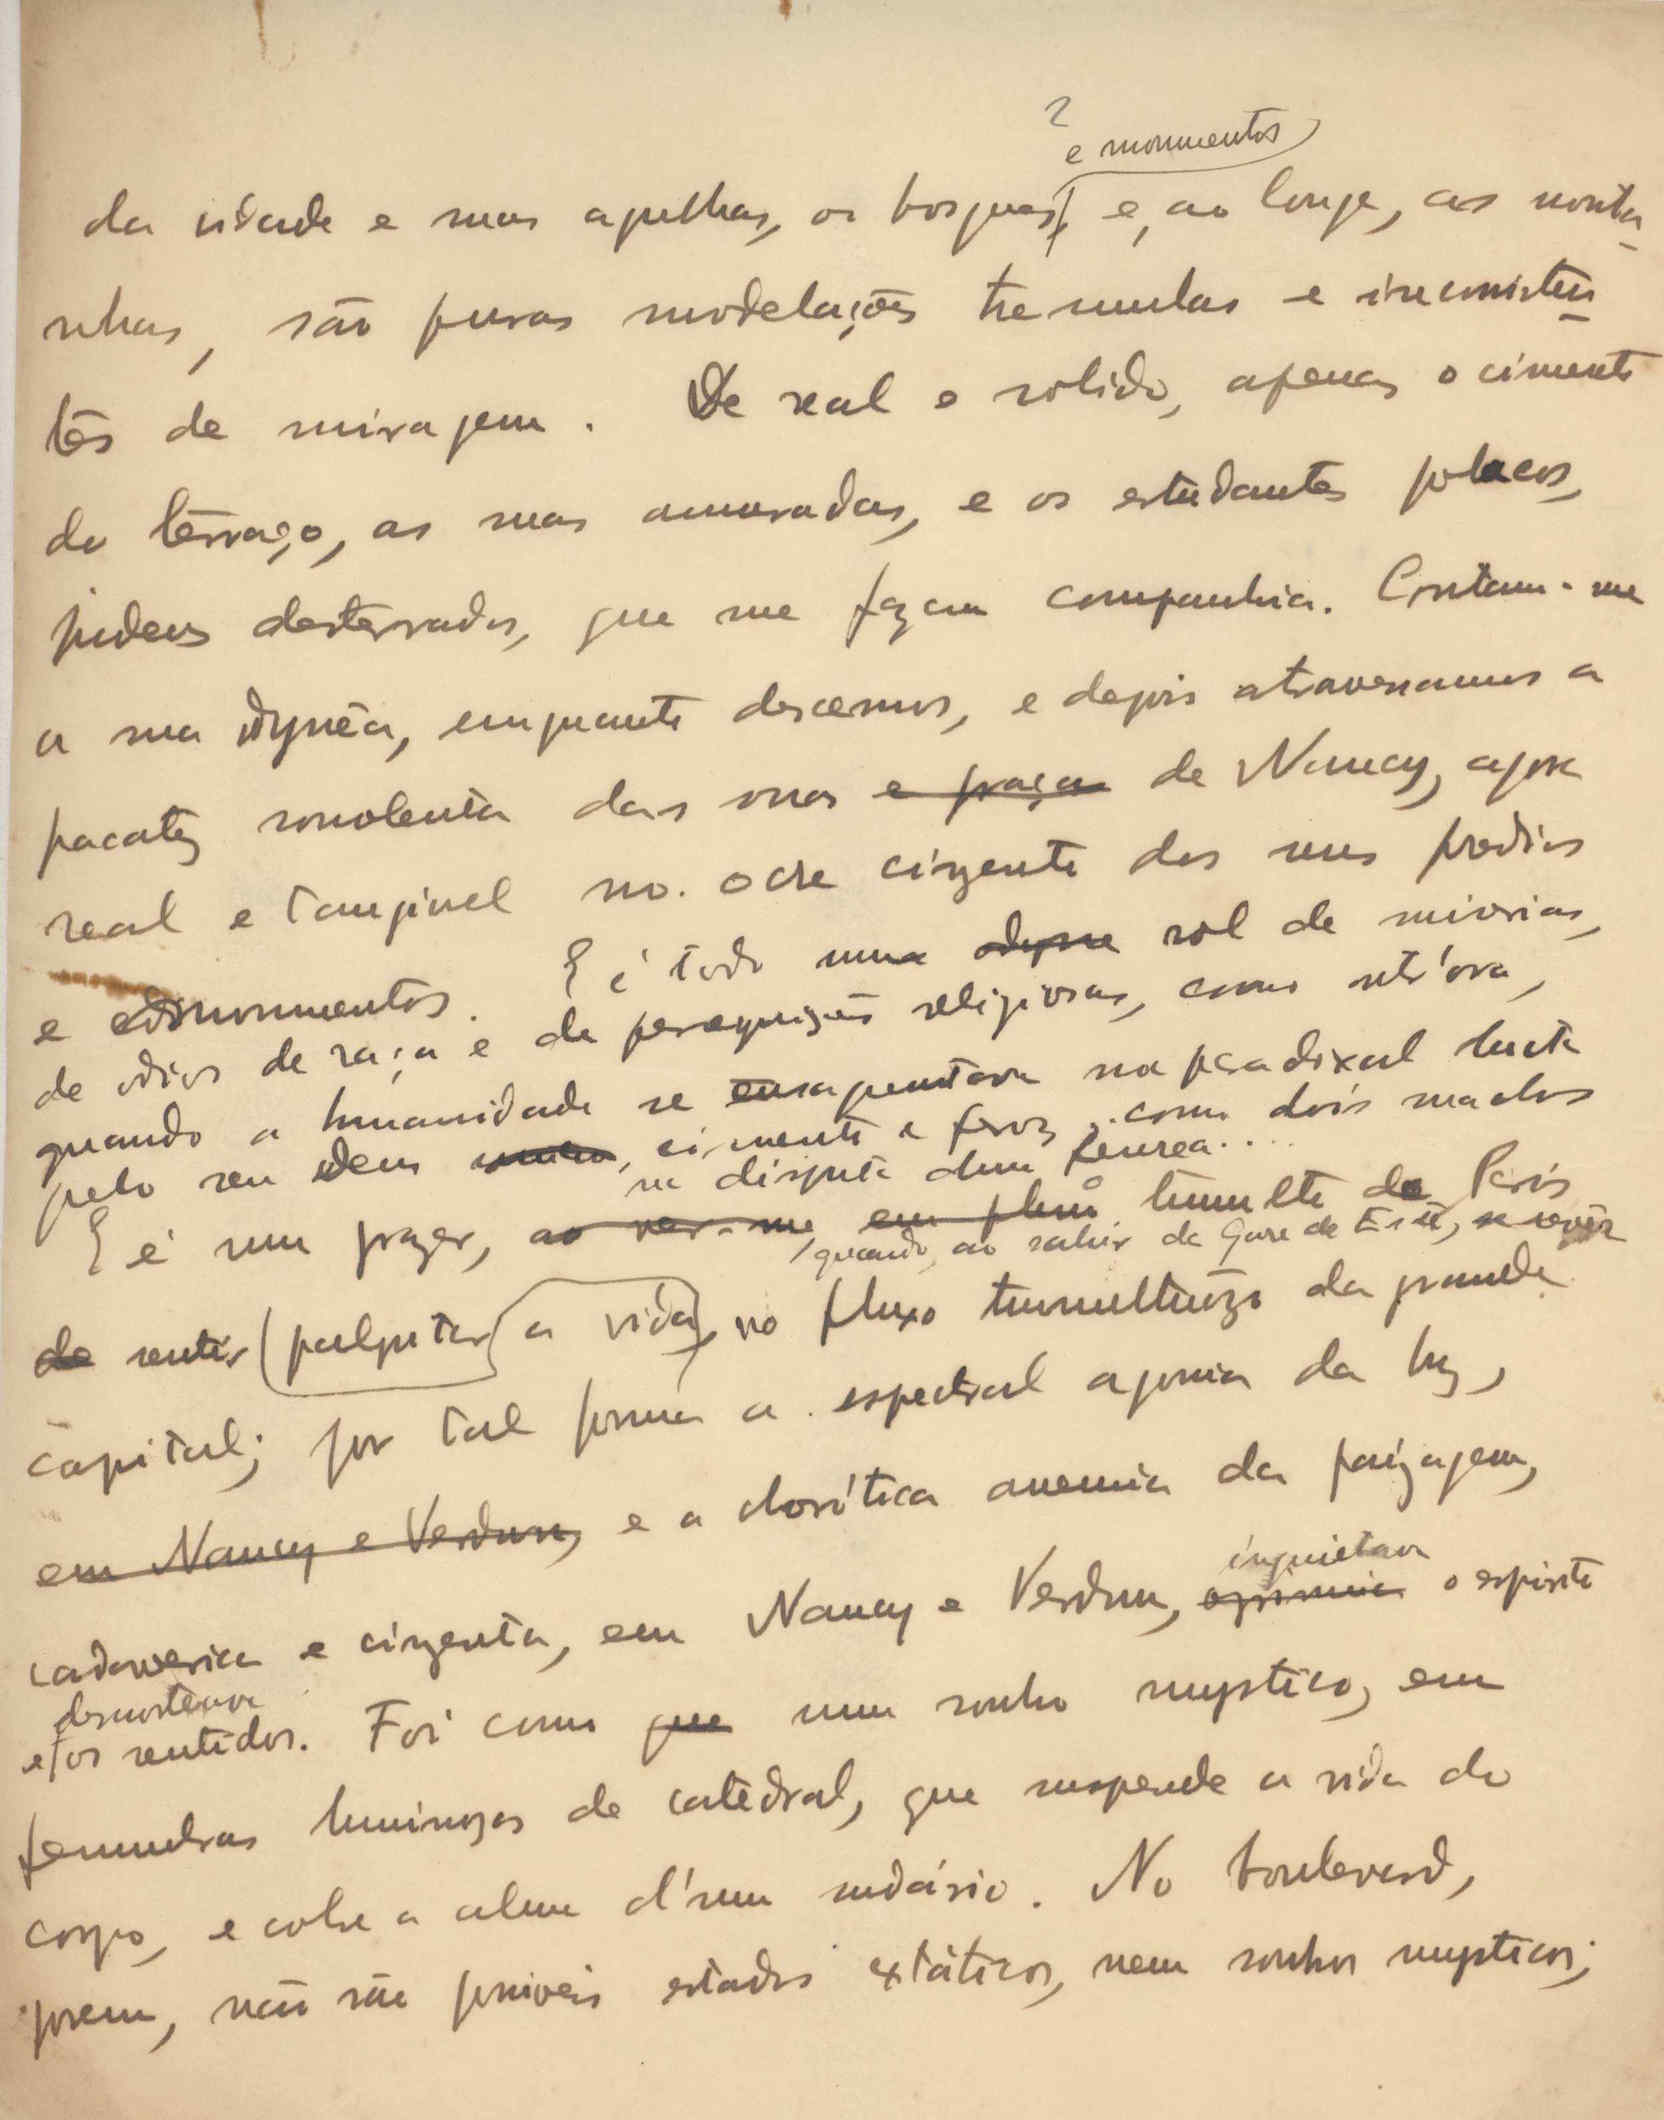 ? e monumentos
da cidade e suas agulhas, os bosques e, ao longe, as monta-
nhas, são puras modelações tremulas e inconsisten-
tes de miragem. De real e solido, apenas o cimento
do terraço, as suas amuradas, e os estudantes polacos,
judeus desterrados, que me fazem companhia. Contam-me
a sua odyssêa, emquanto descemos, e depois atravessamos a
pacatez sonolenta das ruas e praças de Nancy, agora
real e tangivel no ocre cinzento dos seus predios
e monumentos. E é todo um rol de miserias,
de odios de raça e de perseguições religiosas, como outr'ora,
quando a humanidade se ensaguentava na paradoxal lucta
pelo seu Deus, ciumento e feroz, como dois machos
na disputa duma femea....
E é um prazer, ao ver-me, em pleno tumulto de Paris
quando, ao sahir da Gare de Est, se
de sentir palpitar a vida, no fluxo tumultuozo da grande
capital; por tal forma a espectral agonia da luz,
em Nancy e Verdun, e a clorótica anemia da paizagem,
inquietava
cadaverica e cinzenta, em Nancy e Verdun, oprimia o espirito
desnorteava
e os sentidos. Foi como que um sonho mystico, em
penumbras luminozas de catedral, que suspende a vida do
corpo, e cobre a alma d'um sudário. No boulevard,
porem, não são possiveis estados extáticos, nem sonhos mysticos;